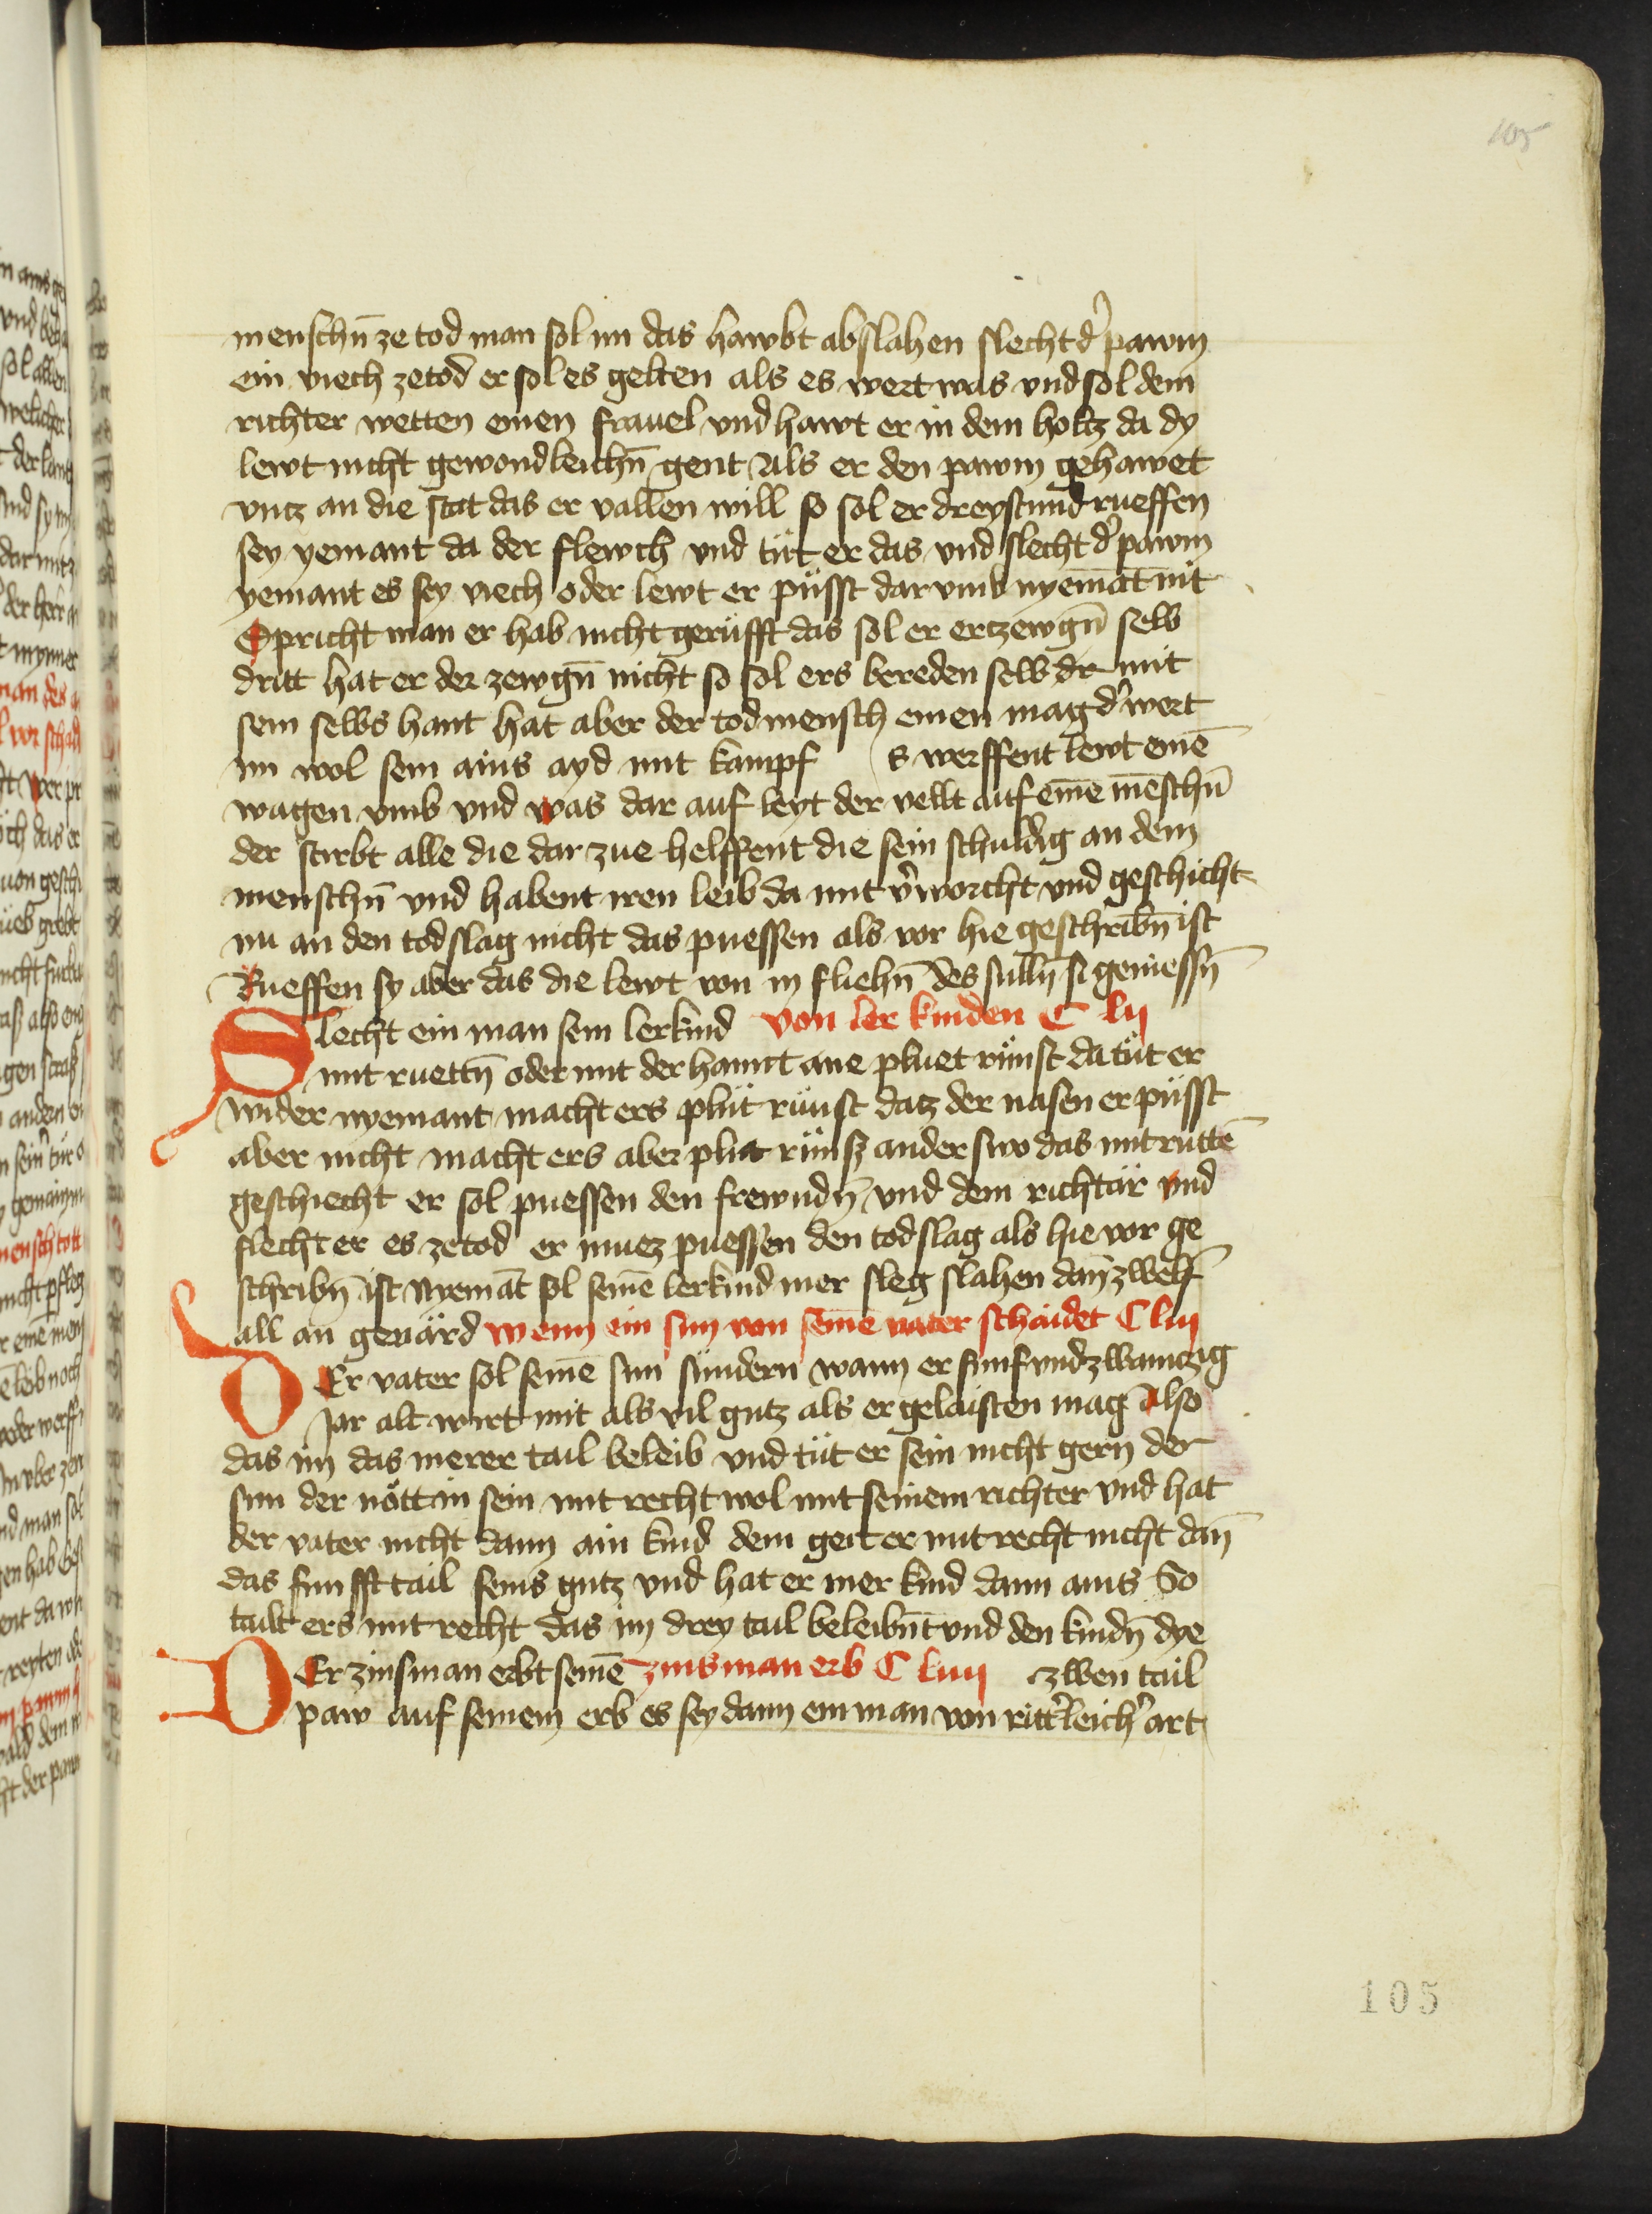 105
menschn̄ ze tod man sol im das hawbt abslahen slecht d͛ pawm
ein viech zetod er sol es gelten als es wert was vnd sol dem
richter wetten einen frauel vnd hawt er in dem holtz da dy
lewt nicht gewondleichn̄ gent Als er den pawm gehawet
vntz an die stat das er vallen will so sol er dreystund rueffen
sey yemant da der flewch vnd tüt er das vnd slecht d͛ pawm
yemant es sey viech oder lewt er püsst dar vmb nyemāt nit
Spricht man er hab nicht gerüfft das sol er ertzewgn̄ selb
dritt hat er der zewgn̄ nicht so sol ers bereden selb dr mit
sein selbs hant hat aber der tod mensch einen mag d͛ wert
im wol sein ains ayd mit kampf s werffent lewt einē
wagen vmb vnd was dar auf leyt der vellt auf einē mēschn̄
der stirbt alle die dar zue helffent die sein schuldig an dem
menschn̄ vnd habent iren leib da mit v͛worcht vnd geschicht
nu an den todslag nicht das puessen als vor hie geschribn̄ ist
Rueffen sy aber das die lewt von in fliehn̄ des sulln̄ si geniessn̄
Slecht ein man sein lerkind von ler kinden C lij
mit ruettn̄ oder mit der hannt ane pluet rünst da tüt er
wider nyemant macht ers plüt rünst datz der nasen er püsst
aber nicht macht ers aber plüt rünst anderswo das mit ruttē
geschiecht er sol puessen den frewndn̄ vnd dem richtär vnd
slecht er es zetod er muez puessen den todslag als hie vor ge
schribn̄ ist Nyemāt sol seinē lerkind mer sleg slahen dan̄ zwelf
all an geuärd wenn ein sun von seinē vater schaidet C liij
DEr vater sol seinē sun sündern wann er funf vnd zwaintzig
Jar alt wirt mit als vil gutz als er gelaisten mag Also
das im das merer tail beleib vnd tüt er sein nicht gern der
sun der nött in sein mit recht wol mit seinem richter vnd hat
der vater nicht dann ain kind dem geit er mit recht nicht dan̄
das funfft tail seins gutz vnd hat er mer kind dann ains So
tailt ers mit recht das im drey tail beleibn̄t vnd den kindn̄ dye
DEr zinsman erbt seinē zinsman erb C liiij zwen tail
paw auf seinem erb es sey dann ein man von ritt͛leich͛ art
105